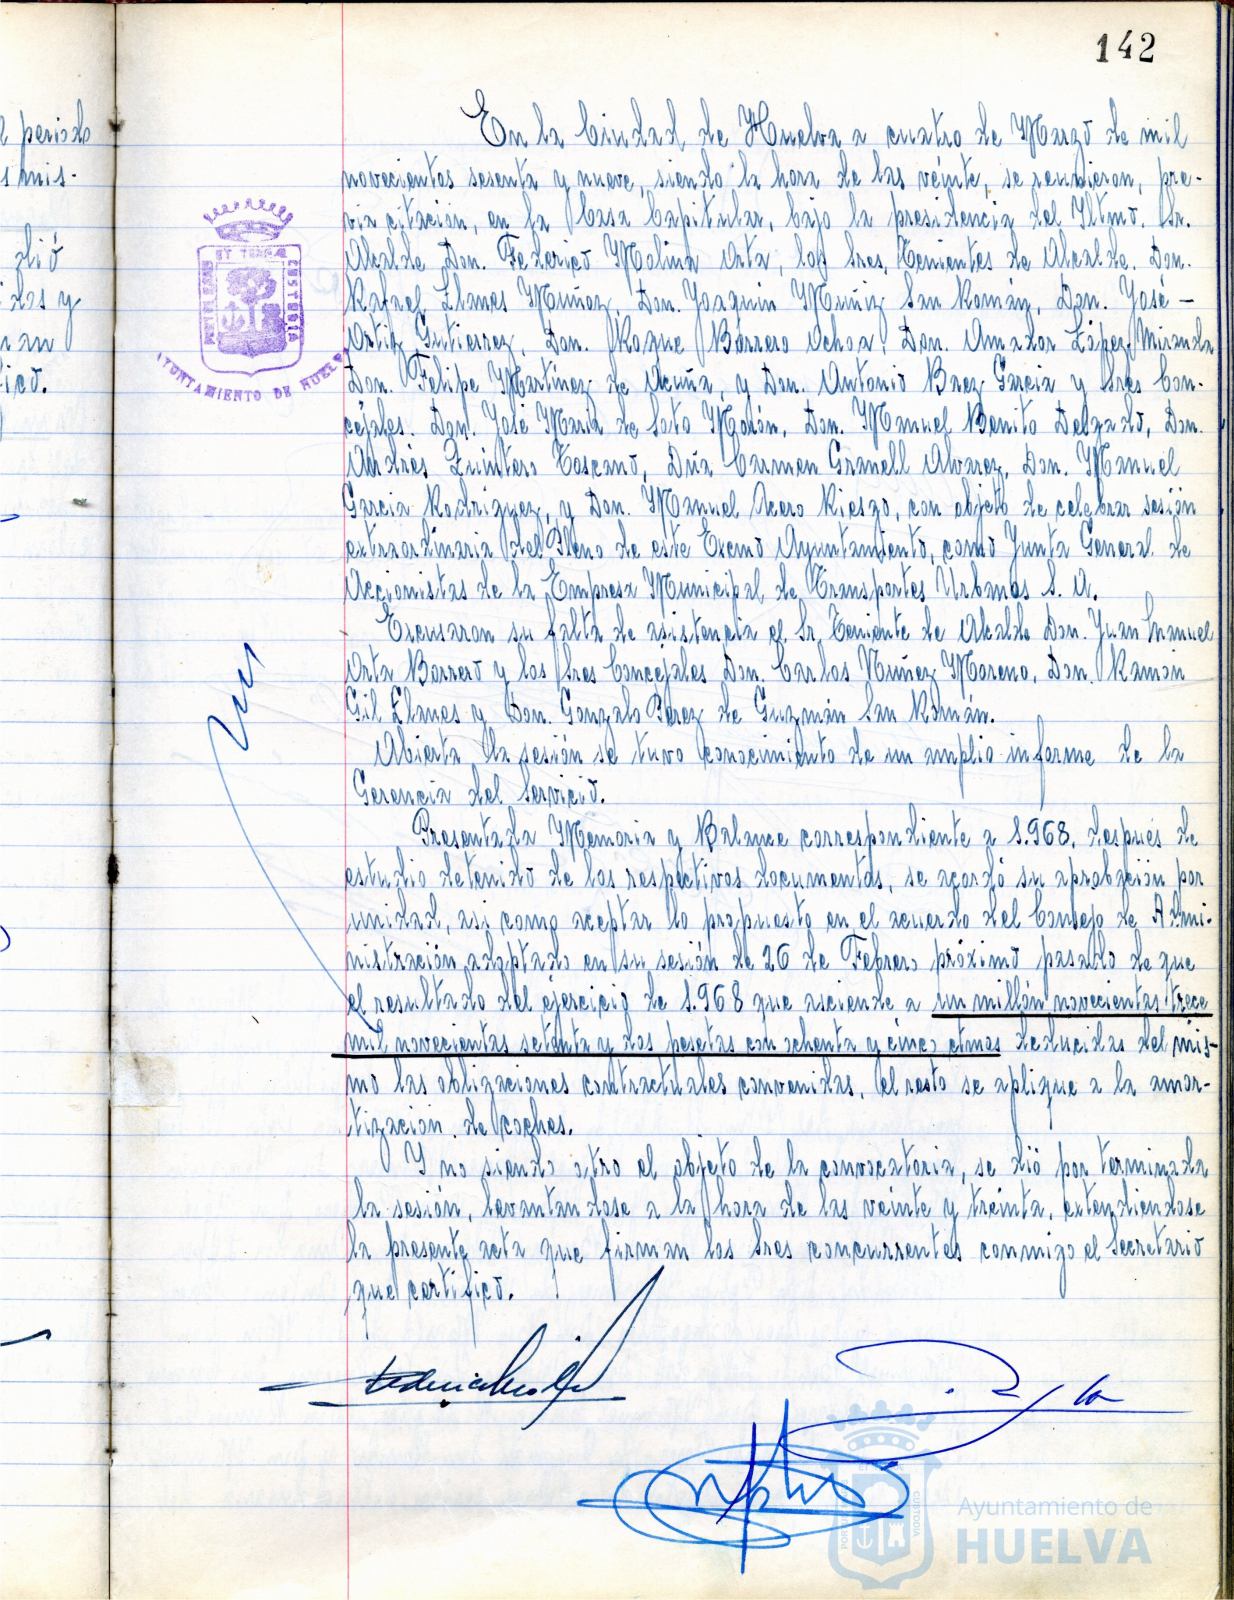 142
e periodo
s mis-
dió
idas y
ran
ico.
PORTUS MARIS ET TERRÆ CUSTODIA
AYUNTAMIENTO DE HUELVA
En la Ciudad de Huelva a cuatro de Marzo de mil
novecientos sesenta y nueve, siendo la hora de las veinte, se reunieron, pre-
via citación, en la Casa Capitular, bajo la presidencia del Iltmo. Sr.
Alcalde Don. Federico Molina Orta, los Sres. Tenientes de Alcalde. Don.
Rafael Llanes Muñoz, Don. Joaquin Muñiz San Román, Don. José -
Ortiz Gutierrez, Don. Roque Barrero Ochoa, Don. Amador López Miranda
Don. Felipe Martínez de Acuña, y Don. Antonio Baez Garcia y Sres Con-
cejales. Don. José María de Soto Molón, Don. Manuel Benito Delgado, Don.
Andrés Quintero Toscano, Dña Carmen Granell Alvarez, Don. Manuel
Garcia Rodriguez, y Don. Manuel Acero Riesgo, con objeto de celebrar sesión
extraordinaria del Pleno de este Excmo Ayuntamiento, como Junta General de
Accionistas de la Empresa Municipal de Transportes Urbanos S. A.
Excusaron su falta de asistencia el Sr. Teniente de Alcalde Don. Juan Manuel
Orta Borrero y los Sres Concejales Don. Carlos Nuñez Moreno, Don. Ramón
Gil Llanes y Don. Gonzalo Perez de Guzmán San Román.
Abierta la sesión se tuvo conocimiento de un amplio informe de la
Gerencia del Servicio.
Presentada Memoria y Balance correspondiente a 1.968, después de
estudio detenido de los respectivos documentos, se acordó su aprobación por
unidad, asi como aceptar lo propuesto en el acuerdo del Consejo de Admi-
nistración adoptado en su sesión de 26 de Febrero próximo pasado de que
el resultado del ejercicio de 1.968 que asciende a un millón novecientas trece
mil novecientas setenta y dos pesetas con ochenta y cinco ctmos deducidas del mis-
mo las obligaciones contractuales convenidas, el resto se aplique a la amor-
tización de coches.
Y no siendo otro el objeto de la convocatoria, se dió por terminada
la sesión, levantandose a la hora de las veinte y treinta, extendiendose
la presente acta que firman los Sres concurrentes conmigo el Secretario
que certifico.
Federico Molina
Ayuntamiento de
HUELVA